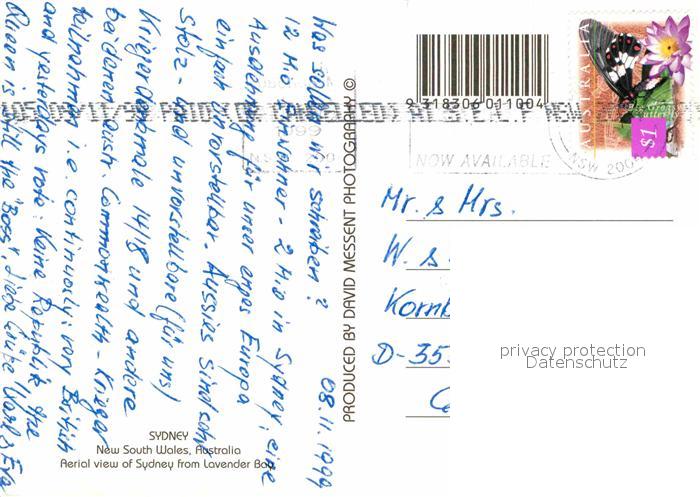 08.11.1999
Was sollen wir schreiben?
12 Mio Einwohner - 2 Mio in Sydney; eine
Ausdehnung für unser enges Europa
einfach unvorstellbar. Aussies sind sehr
stolz - und unvorstellbare (für uns)
Kriegerdenkmale 14/18 und andere
bei denen Aust. Commonwealth-Krieger
teilnahmen i.e. continuously: very British
and yesterdays vote: Keine Republik the
Queen is still the "Boss". Liebe Grüße
SYDNEY
New South Wales, Australia
Aerial view of Sydney from Lavender Bay
PRODUCED BY DAVID MESSENT PHOTOGRAPHY ©
9 318306 011004
NOW AVAILABLE
NSW 200
AUSTRALIA
$1
Mr. & Mrs.
W. &
Korn
D-35
privacy protection
Datenschutz